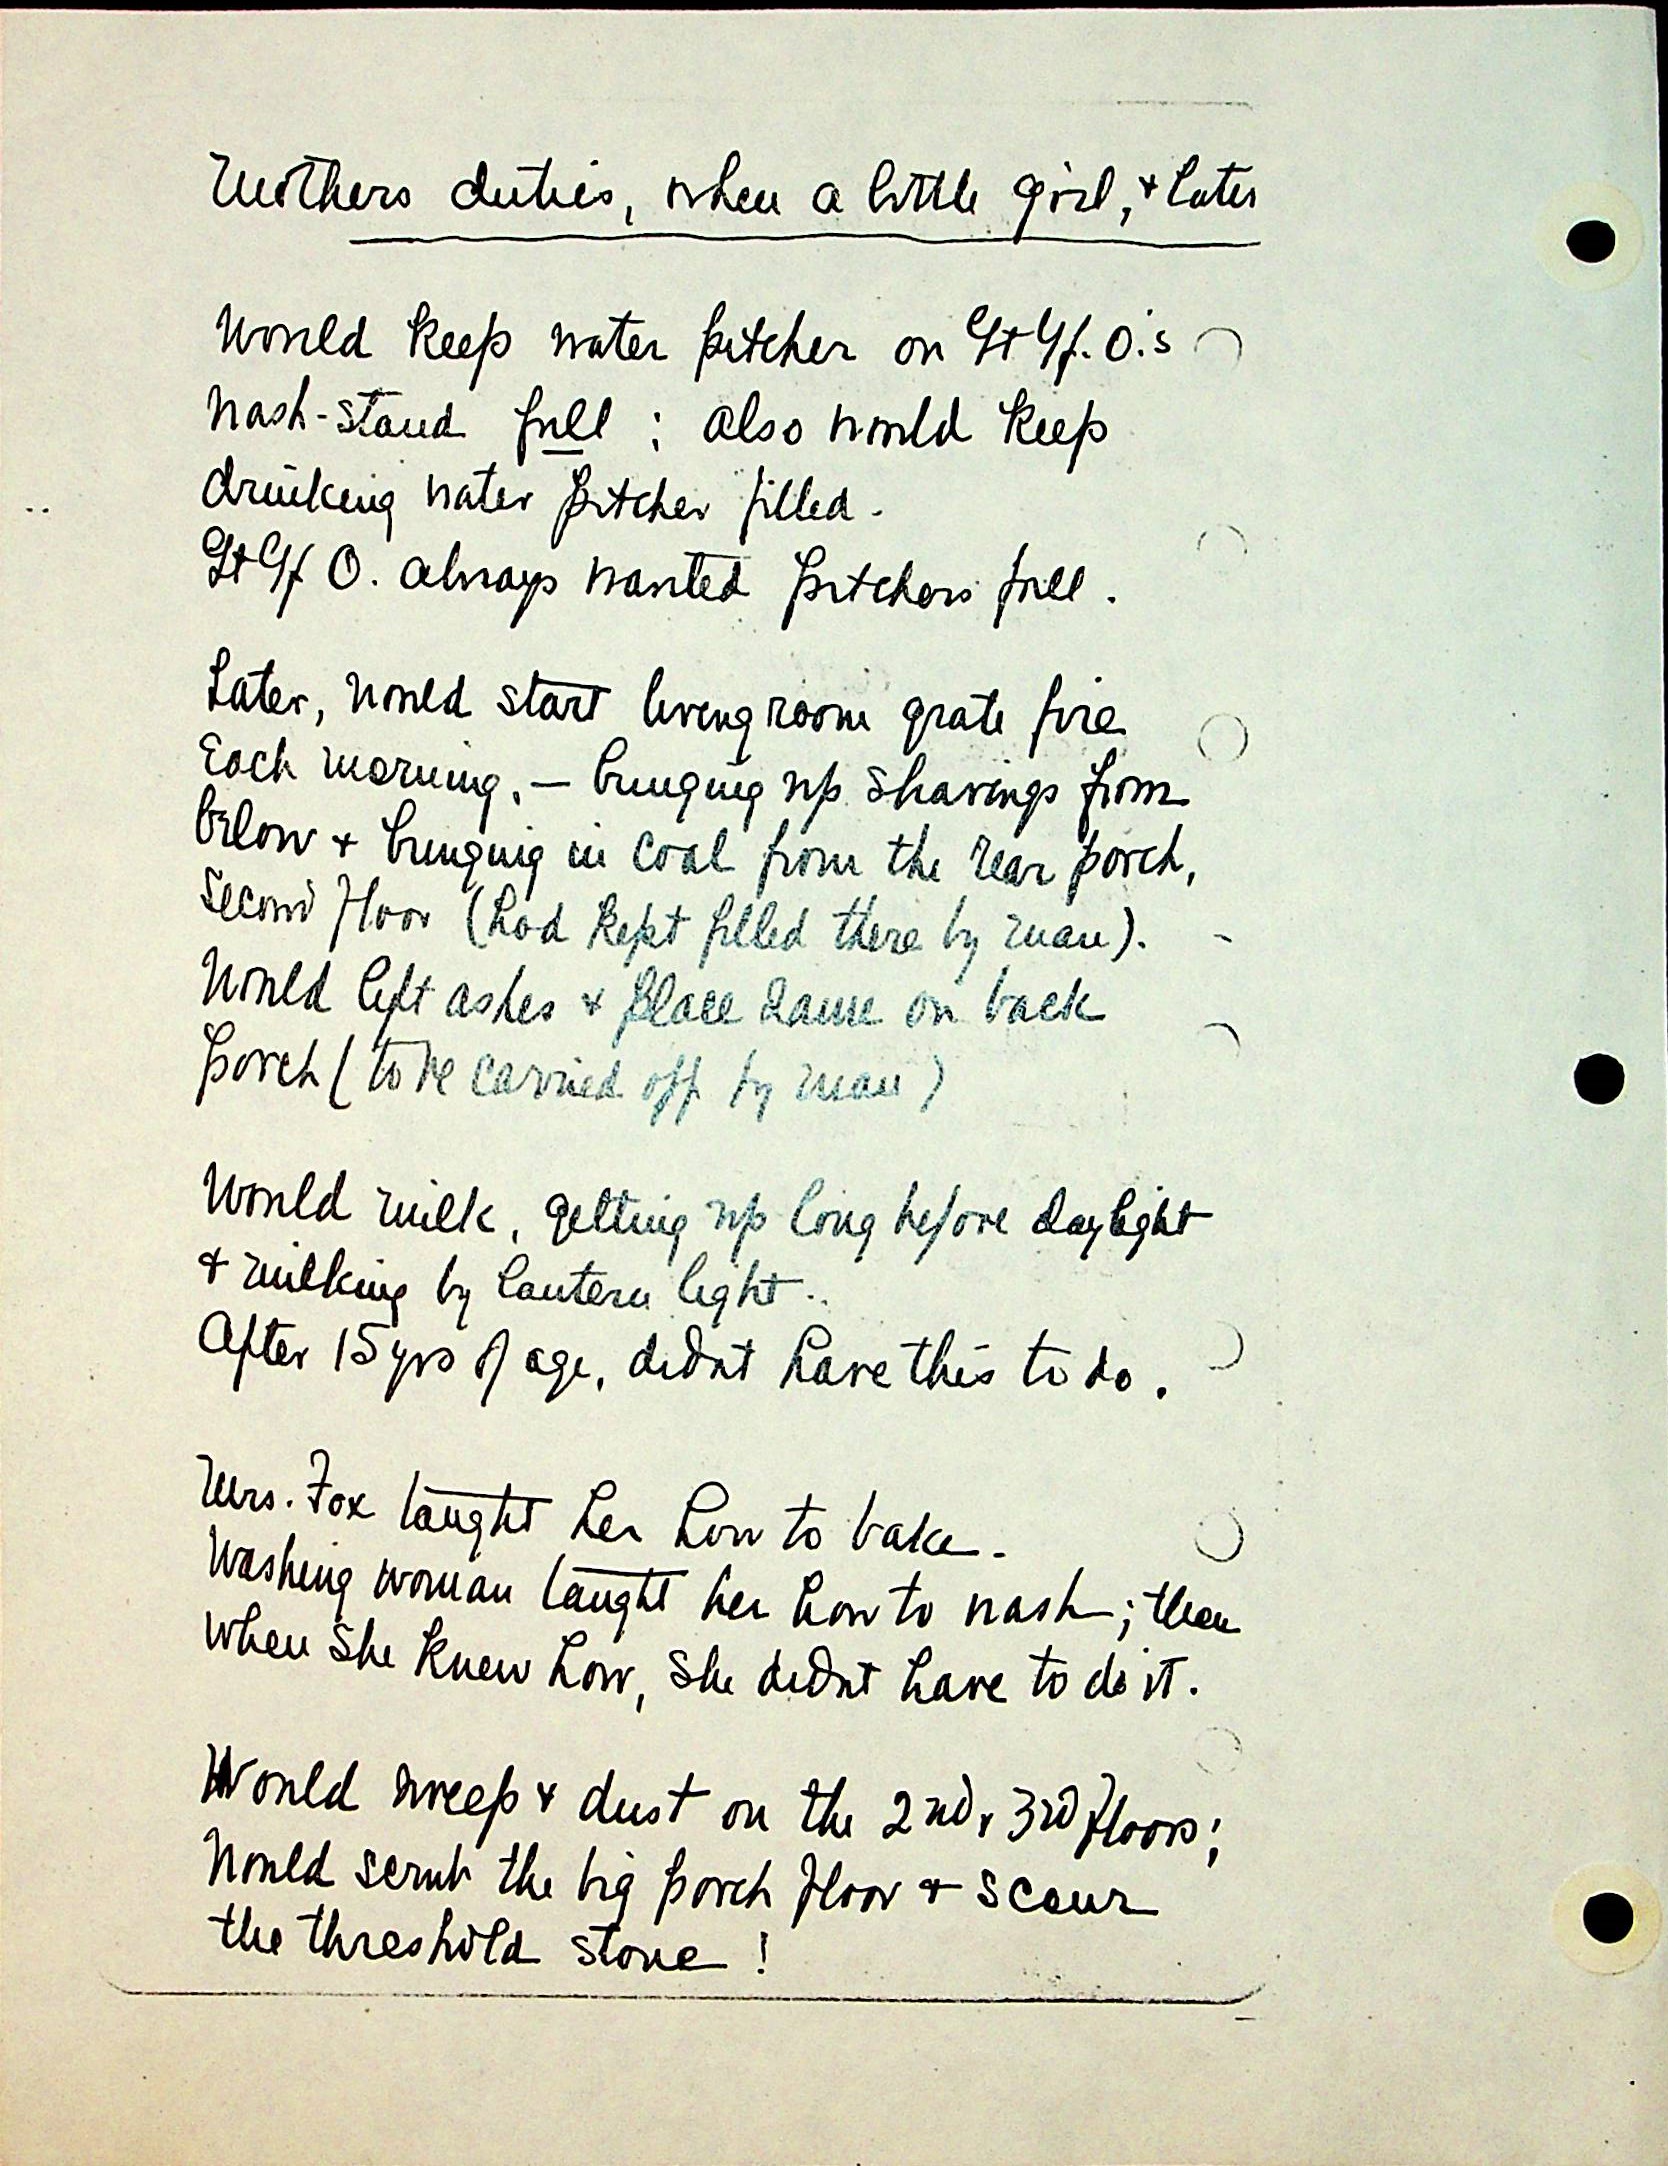 Mothers duties, when a little girl, & later
Would keep water pitcher on Gt Gf. O.'s
wash-stand full ; also would keep
drinking water pitcher filled.
Gt Gf O. always wanted pitchers full.
Later, would start livingroom grate fire
each morning, — bringing up shavings from
below & bringing in coal from the rear porch,
second floor (hod kept filled there by man).
Would lift ashes & place same on back
porch (to be carried off by man)
Would milk, getting up long before daylight
& milking by lantern light.
After 15 yrs of age, didnt have this to do.
Mrs. Fox taught her how to bake.
Washing woman taught her how to wash; then
when she knew how, she didnt have to do it.
Would sweep & dust on the 2nd & 3rd floors;
would scrub the big porch floor & scour
the threshold stone!